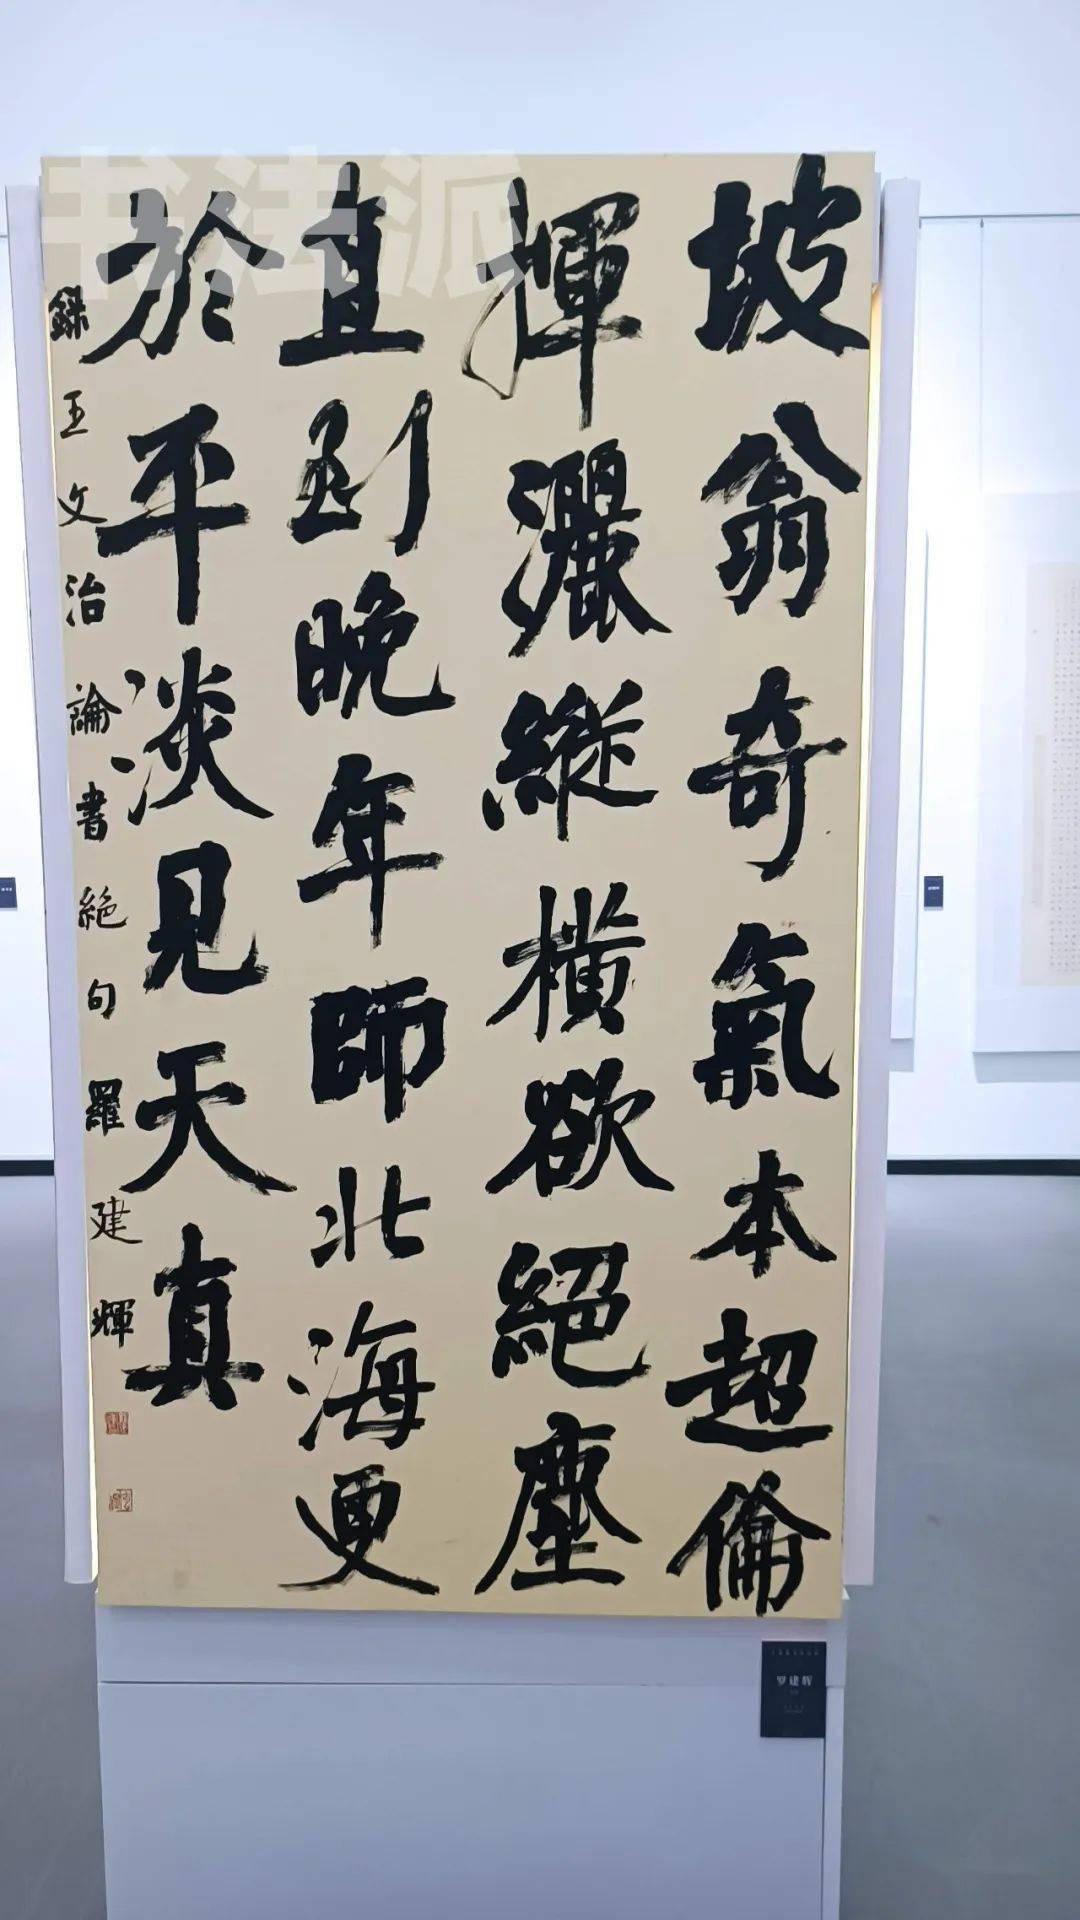 坡翁奇氣本超倫
揮灑縱橫欲絕塵
直到晚年師北海更
於平淡見天真
錄王文治論書絕句羅建輝
书法派
罗建辉